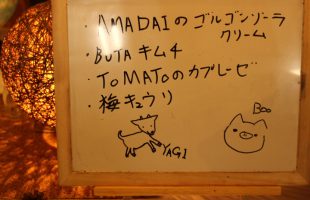 ・AMADAIの ゴルゴンゾーラ
クリーム
・BUTA キムチ
・TOMATOのカプレーゼ
・梅キュウリ
Boo
YAGI